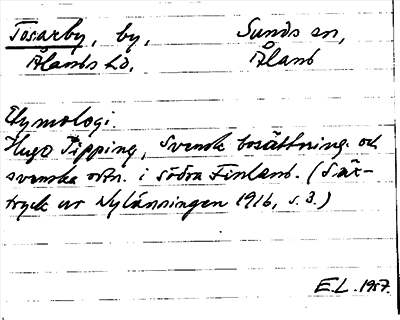 Tosarby, by, Sunds sn,
Ålands hd. Åland
Etymologi
Hugo Pipping, Svensk bosättning och
svenska ortn. i södra Finland. (Sär-
tryck ur Nylänningen 1916, s. 3.)
E.L. 1957.